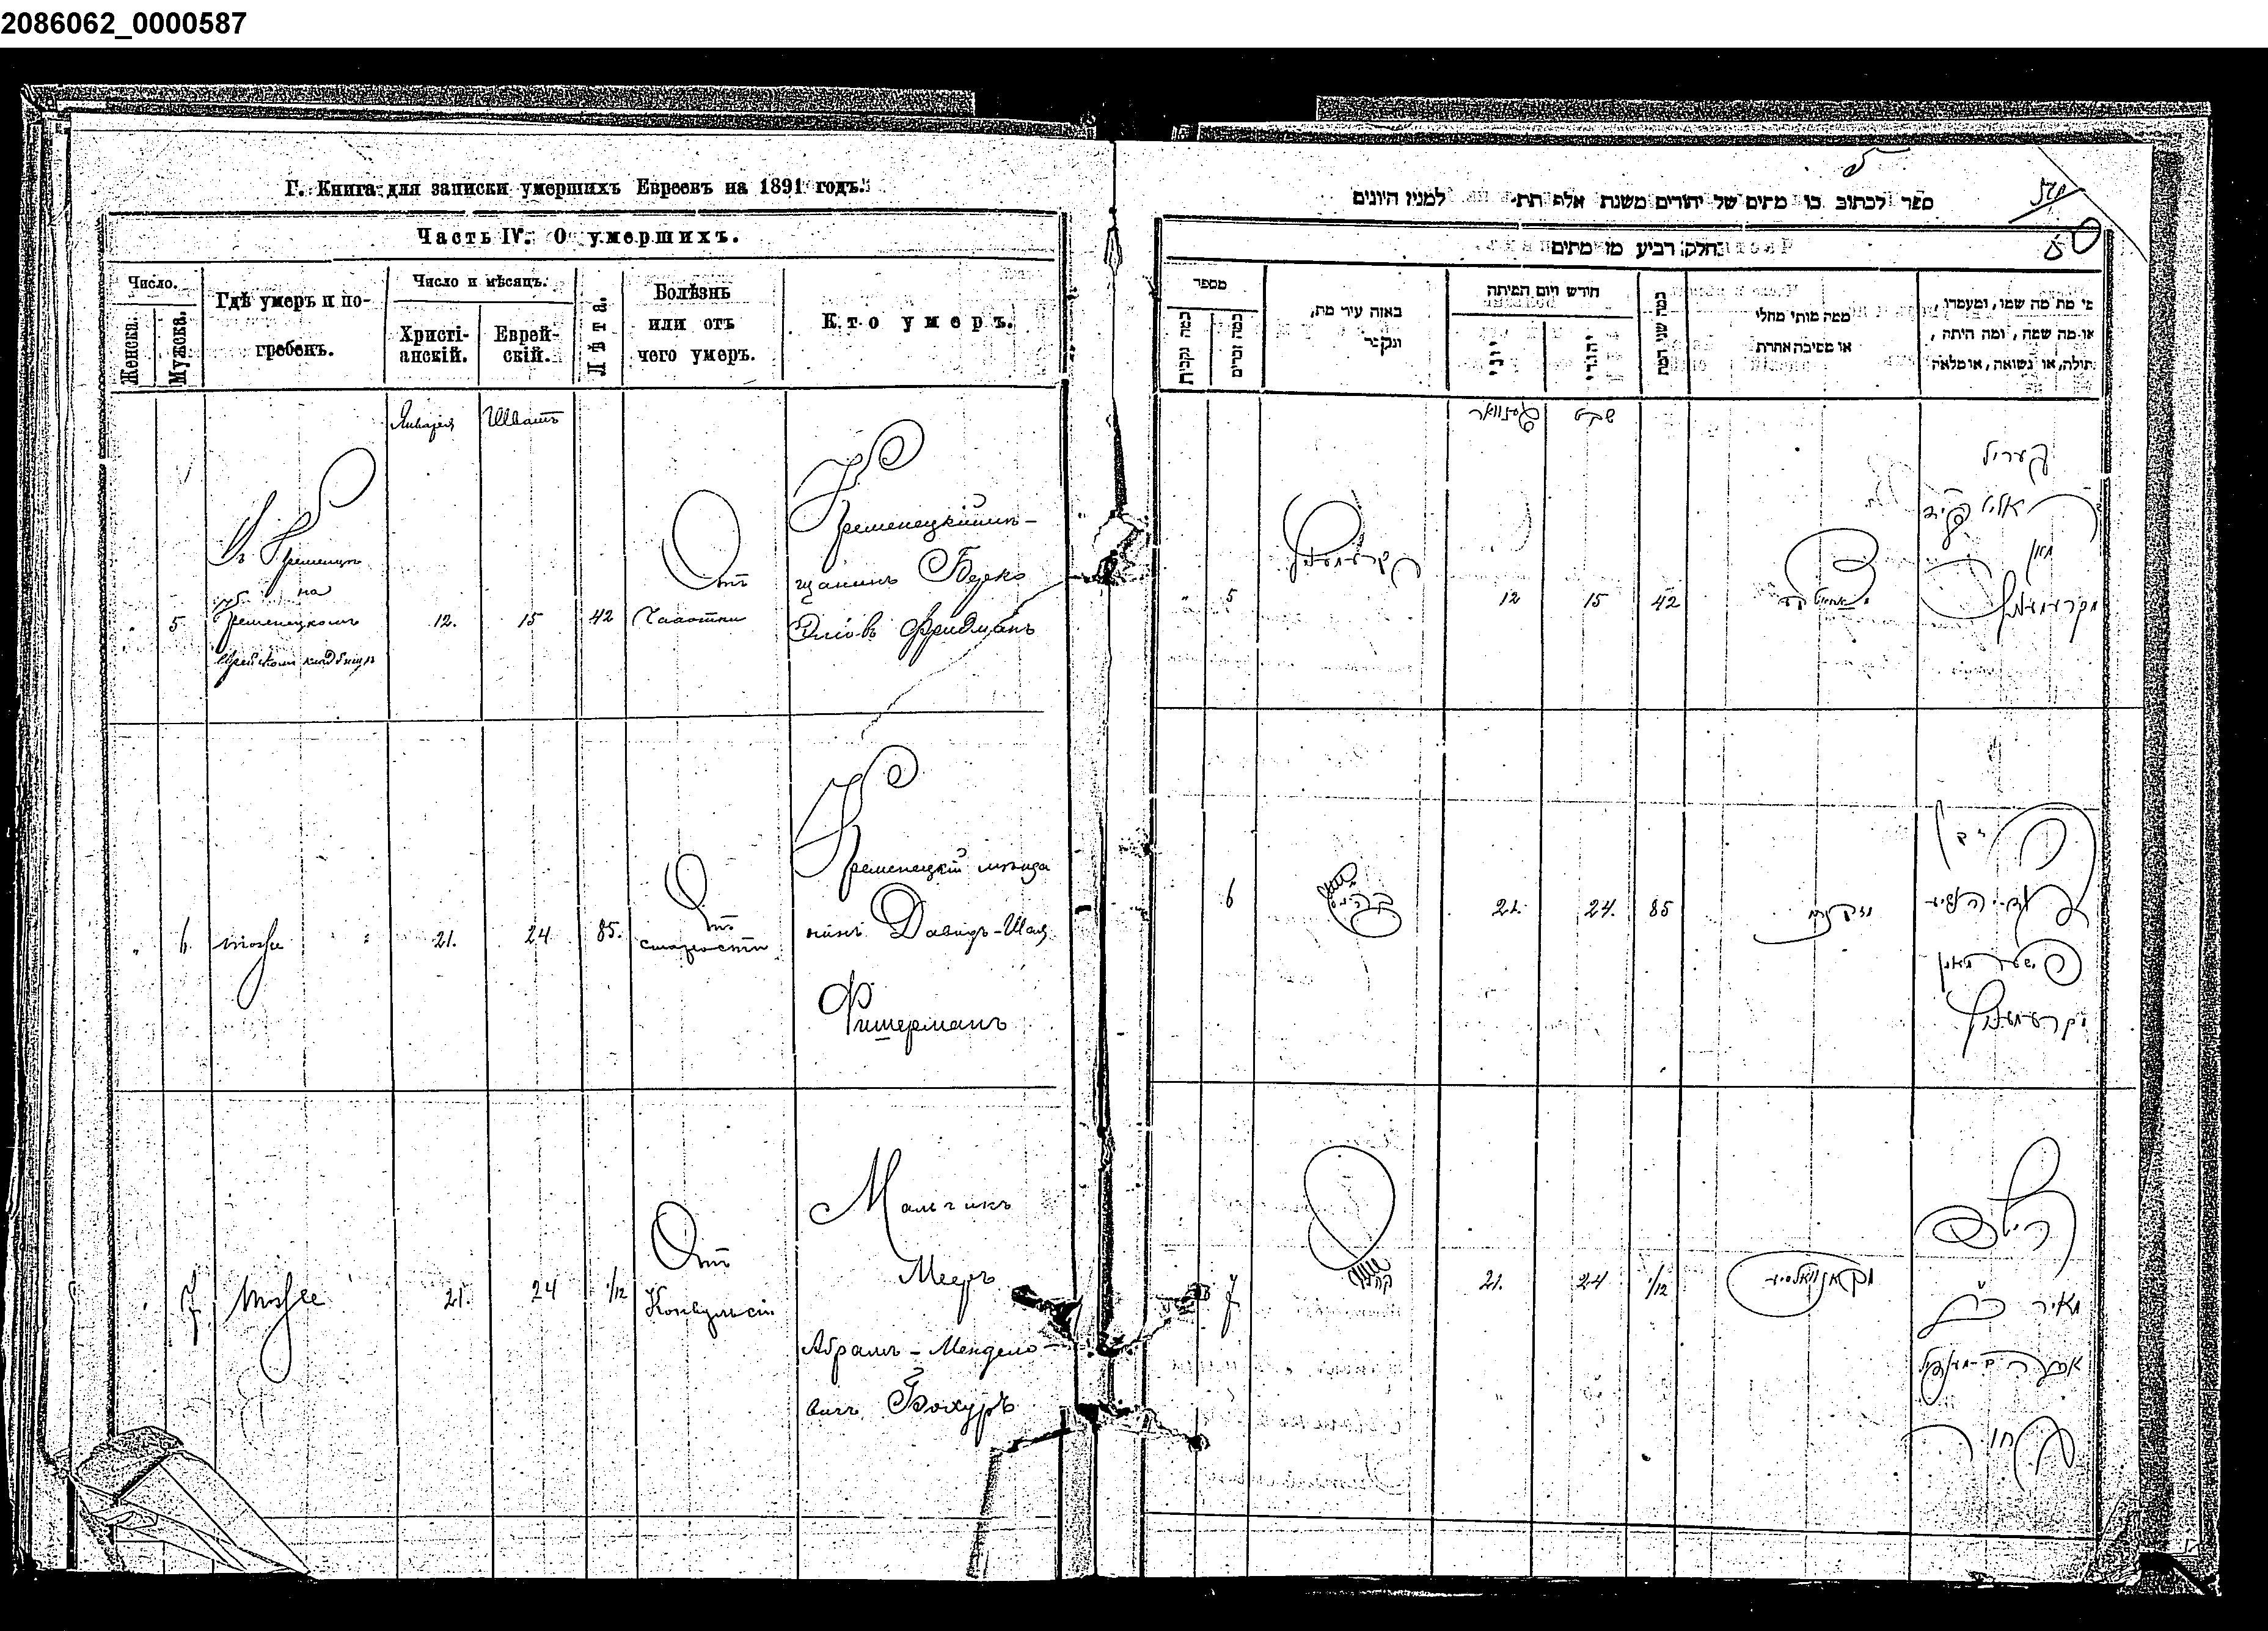 2086062_0000587
Г. Книга для записки умершихъ Евреевъ на 1891 годъ.
Часть IV. О умершихъ.
Число.
Женска.
Мужска.
Гдѣ умеръ и по-
гребенъ.
Число и мѣсяцъ.
Христі-
анскій.
Еврей-
скій.
Лѣта.
Болѣзнь
или отъ
чего умеръ.
Кто умеръ.
Января
Шватъ
5
Въ Кременцѣ
на
Кременецкомъ
Еврейскомъ кладбищѣ
12.
15
42
Отъ
Чахотки
Кременецкій мѣ-
щанинъ Берко
Эліовъ Фридманъ
6.
тоже
21.
24
85.
Отъ
старости
Кременецкій мѣща
нинъ Давидъ-Шая
Фишерманъ
7
тоже
21.
24
1/12
Отъ
Конвульсіи
Мальчикъ
Мееръ
Абрамъ-Мендело-
вичъ Бохуръ
ספר לכתוב בו מתים של יהודים משנת אלף תת למנין היונים
50
חלק רביע מו מתים
מספר
כמה נקבות
כמה זכרים
באזה עיר מת,
ונקבר
חודש ויום המיתה
יוני
יהודי
כמה שני המת
ממה מותי מחלי
או מסיבה אחרת
מי מת מה שמו, ומעמדו,
או מה שמה, ומה היתה,
בתולה, או נשואה, או מלאה
יאנוואר
שבט
5
12
15
42
בערל
מקרעמעניץ
6
21.
24.
85
מזקנה
פישערמאן
מקרעמעניץ
7
21.
24
1/12
מקאנוואלסיע
הילד
מאיר
אברהם-מענדיל
בחור